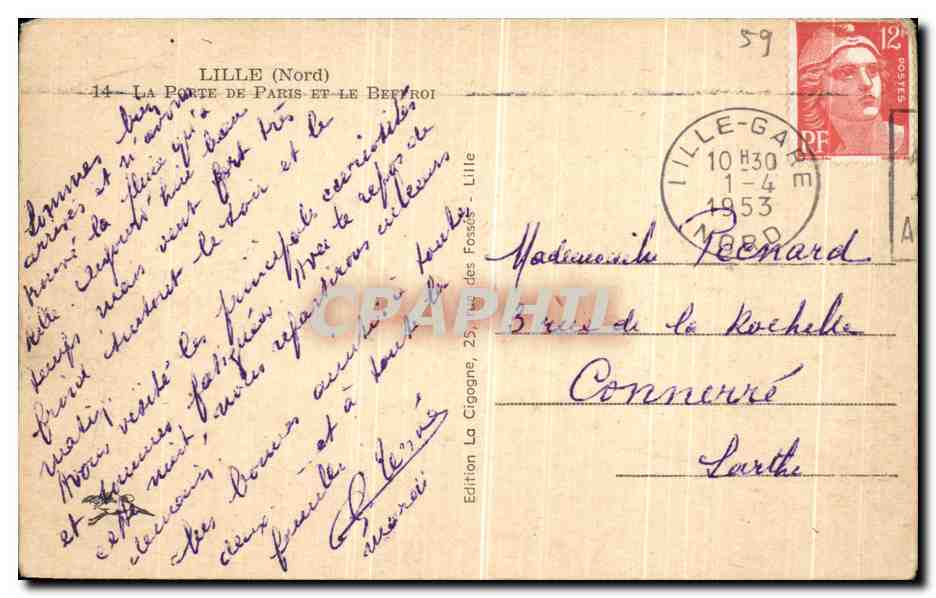 LILLE (Nord)
14 - LA PORTE DE PARIS ET LE BEFFROI
Sommes bien
arrivés et n'avons
trouvé la pluie qu'à
Lille aujourd'hui beau
temps mais vent fort très
froid surtout le soir et le
matin.
Avons visité les principales curiosités
et sommes fatigués. Avec le repos de
cette nuit, nous repartirons ailleurs
demain.
Mes bonnes amitiés à toutes
deux et à toute la
famille
mardi
Edition La Cigogne, 25, rue des Fossés - Lille
59
12F
POSTES
RF
LILLE-GARE
10 H30
1-4
1953
NORD
A
Mademoiselle Pecnard
3 rue de la Rochelle
Connerré
Sarthe
CPAPHIL